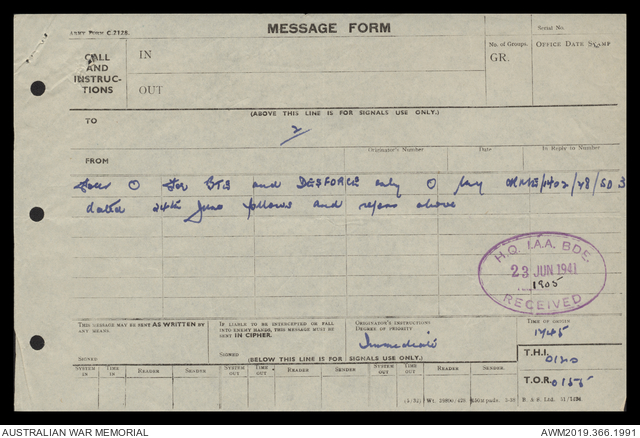 ARMY FORM C.2128.
MESSAGE FORM
Serial No.
CALL AND INSTRUC-TIONS
IN
OUT
No. of Groups.
GR.
OFFICE DATE STAMP
(ABOVE THIS LINE IS FOR SIGNALS USE ONLY.)
TO
2
FROM
Originator's Number
Date
In Reply to Number
O for BTE and DESFORCE only O my /1402/28/SD 3
dated 24th June follows and refers above
H.Q. I.A.A. BDE.
23 JUN 1941
1905
RECEIVED
THIS MESSAGE MAY BE SENT AS WRITTEN BY ANY MEANS.
SIGNED
IF LIABLE TO BE INTERCEPTED OR FALL INTO ENEMY HANDS, THIS MESSAGE MUST BE SENT IN CIPHER.
SIGNED
ORIGINATOR'S INSTRUCTIONS
DEGREE OF PRIORITY
Immediate
TIME OF ORIGIN
1745
(BELOW THIS LINE IS FOR SIGNALS USE ONLY.)
T.H.I.
0120
SYSTEM IN
TIME IN
READER
SENDER
SYSTEM OUT
TIME OUT
READER
SENDER
SYSTEM OUT
TIME OUT
READER
SENDER
T.O.R.
0155
AUSTRALIAN WAR MEMORIAL
AWM2019.366.1991